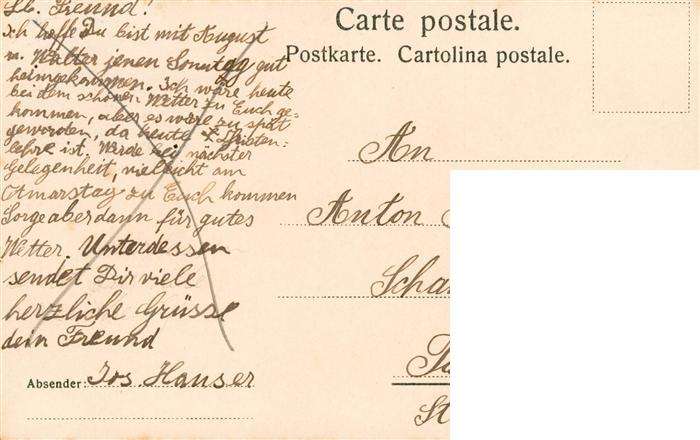 Lb. Freund!
Ich hoffe Du bist mit August
u. Walter jenen Sonntag gut
heimgekommen. Ich wäre heute
bei dem schönen Wetter zu Euch ge-
kommen, aber es wäre zu spät
geworden, da heute Christen-
lehre ist. Werde bei nächster
Gelegenheit, vielleicht am
Otmarstag zu Euch kommen
Sorge aber dann für gutes
Wetter. Unterdessen
sendet Dir viele
herzliche Grüsse
dein Freund
Absender: Jos. Hauser
Carte postale.
Postkarte. Cartolina postale.
An
Anton
Scha
St